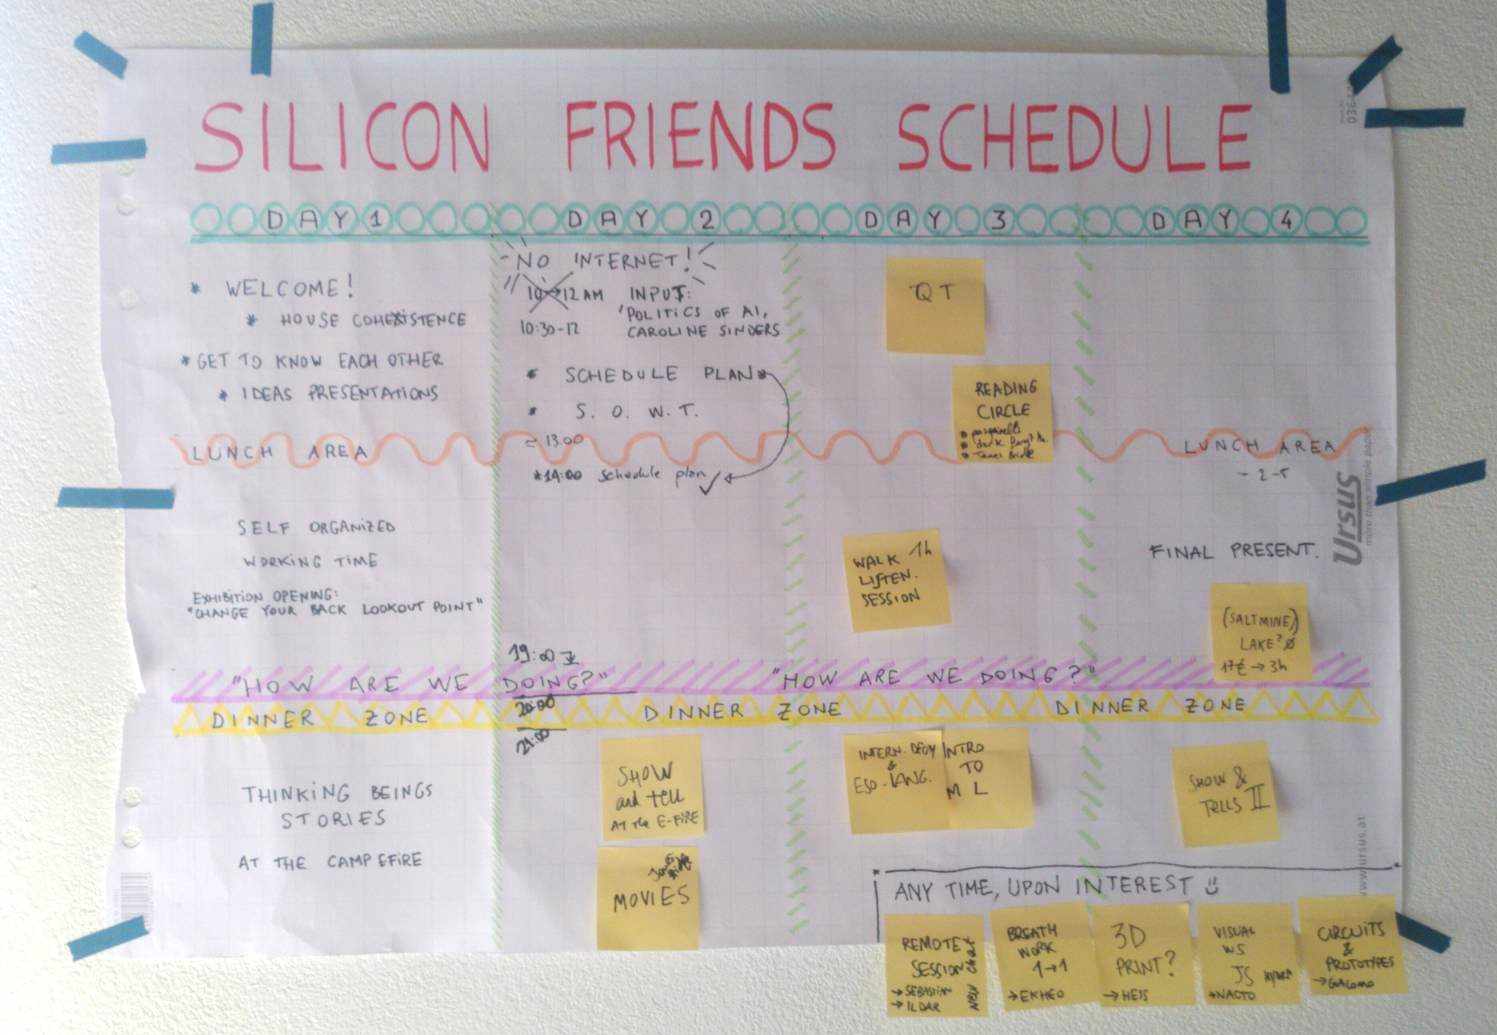 SILICON FRIENDS SCHEDULE
DAY 1
DAY 2
DAY 3
DAY 4
* WELCOME!
* HOUSE COHEXISTENCE
* GET TO KNOW EACH OTHER
* IDEAS PRESENTATIONS
LUNCH AREA
SELF ORGANIZED
WORKING TIME
EXHIBITION OPENING:
"CHANGE YOUR BACK LOOKOUT POINT"
"HOW ARE WE DOING?"
DINNER ZONE
THINKING BEINGS
STORIES
AT THE CAMPEFIRE
NO INTERNET!
10→12 AM INPUT:
10:30-12
'POLITICS OF AI,
CAROLINE SINDERS
* SCHEDULE PLAN
* S. O. W. T.
13.00
*14:00 Schedule plan
19:00
20:00
21:00
DINNER ZONE
SHOW
and tell
AT the E-FIRE
MOVIES
QT
READING
CIRCLE
WALK 1h
LISTEN.
SESSION
"HOW ARE WE DOING?"
INTERN. DEOY
&
ESO-LANG.
INTRO
TO
ML
LUNCH AREA
-2-5
FINAL PRESENT.
(SALTMINE)
LAKE?
17€ → 3h
DINNER ZONE
SHOW &
TELLS II
ANY TIME, UPON INTEREST
REMOTE
SESSION
→SEBASTIAN
→ILDAR
BREATH
WORK
1→1
→EKHEO
3D
PRINT?
→HESS
VISUAL
WS
JS HYDRA
→NACTO
CIRCUITS
&
PROTOTYPES
→GIACOMO
Ursus
www.ursus.at